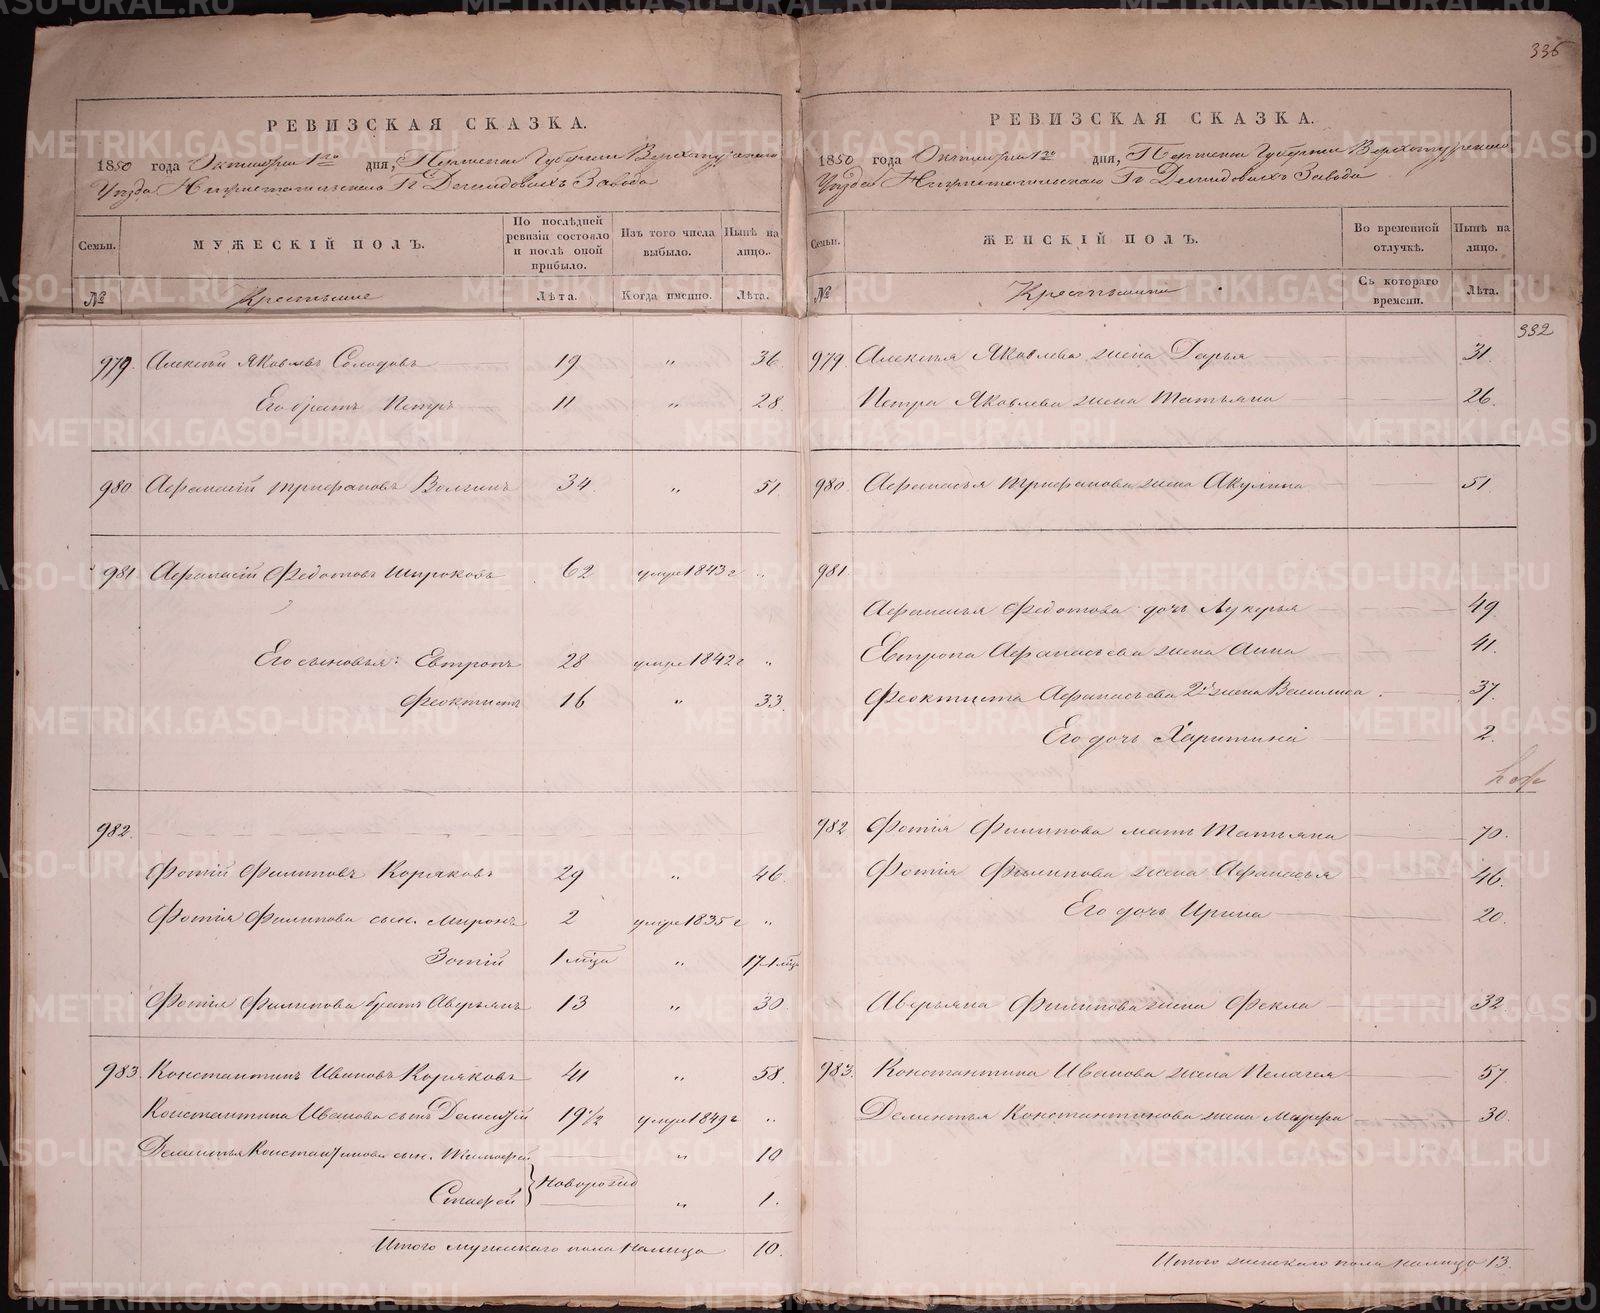 336
РЕВИЗСКАЯ СКАЗКА.
1850 года Октября 1го дня, Пермской Губернии Верхотурскаго
Уѣзда Нижнетагильскаго Гг Демидовыхъ Завода
Семьи. МУЖЕСКІЙ ПОЛЪ. По послѣдней ревизіи состояло и послѣ оной прибыло. Изъ того числа выбыло. Нынѣ на лицо.
№ Крестьяне Лѣта. Когда именно. Лѣта.
979. Алексѣй Яковлевъ Солодовъ 19 „ 36
Его братъ Петръ 11 „ 28.
980 Афанасій Трифановъ Волгинъ 34. „ 51
981 Афанасій Федотовъ Широковъ 62 умре 1843 г „
Его сыновья: Евтропъ 28 умре 1842 г „
Феоктистъ 16 „ 33.
982.
Фотій Филиповъ Коряковъ 29 „ 46.
Фотія Филипова сын. Миронъ 2 умре 1835 г „
Зотій 1 мѣца „ 17 1 мѣца
Фотія Филипова братъ Аверьянъ 13 „ 30.
983. Константинъ Ивановъ Коряковъ 41 „ 58.
Константина Иванова сынъ Дементій 19 1/2 умре 1849 г „
Дементья Константинова сын. Тимофей „ 10
Новорожд
Стафей „ 1.
Итого мужескаго пола налицо 10.
РЕВИЗСКАЯ СКАЗКА.
1850 года Октября 1го дня, Пермской Губернии Верхотурскаго
Уѣзда Нижнетагильскаго Гг Демидовыхъ Завода
Семьи. ЖЕНСКІЙ ПОЛЪ. Во временной отлучкѣ. Нынѣ на лицо.
№ Крестьянки Съ котораго времени. Лѣта.
332
979. Алексѣя Яковлева жена Дарья 31.
Петра Яковлева жена Татьяна 26.
980. Афанасья Трифанова жена Акулина 51.
981.
Афанасья Федотова дочь Лукерья 49
Евтропа Афанасьева жена Анна 41.
Феоктиста Афанасьева 2я жена Василиса 37.
Его дочь Харитинія 2.
982 Фотія Филипова мать Татьяна 70.
Фотія Филипова жена Афанасья 46.
Его дочь Ирина 20.
Аверьяна Филипова жена Фекла 32.
983. Константина Иванова жена Пелагея 57
Дементья Константинова жена Марфа 30.
Итого женскаго пола налицо 13.
METRIKI.GASO-URAL.RU